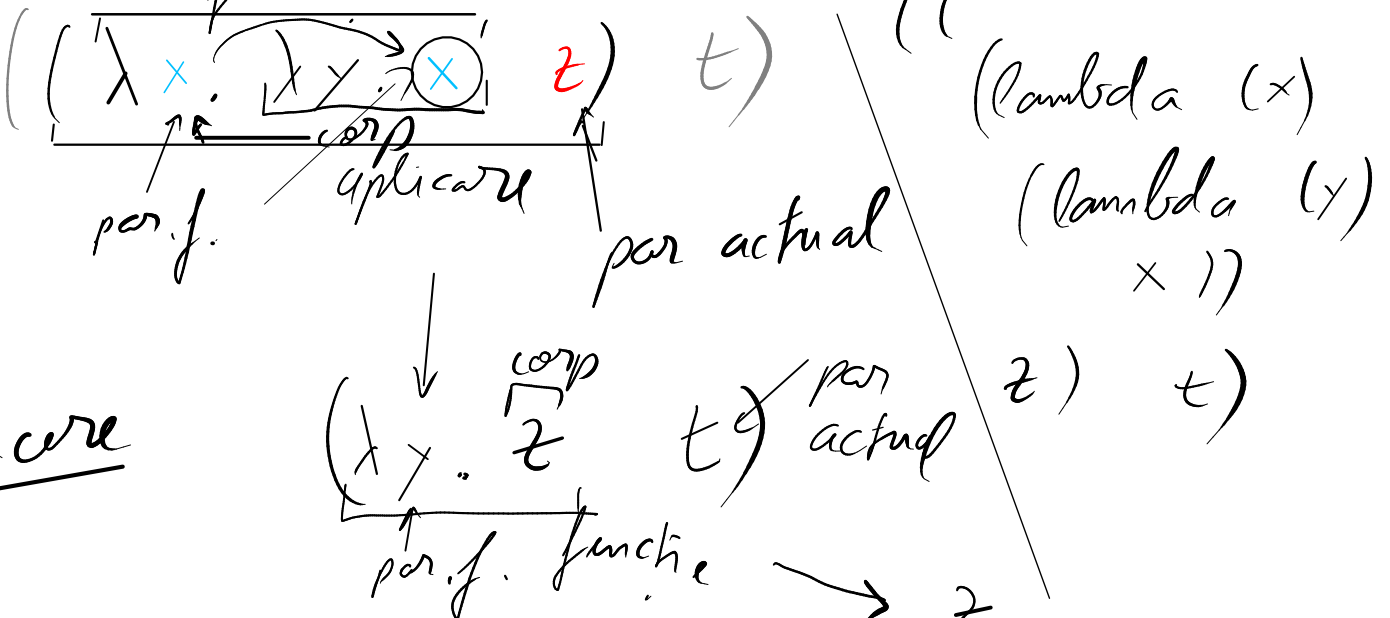 ((λx. λy. x z) t)
corp
aplicare
par. f.
par actual
corp
(λy. z t)
par
actual
par. f.
funcție
z
((
(lambda (x)
(lambda (y)
x ))
z) t)